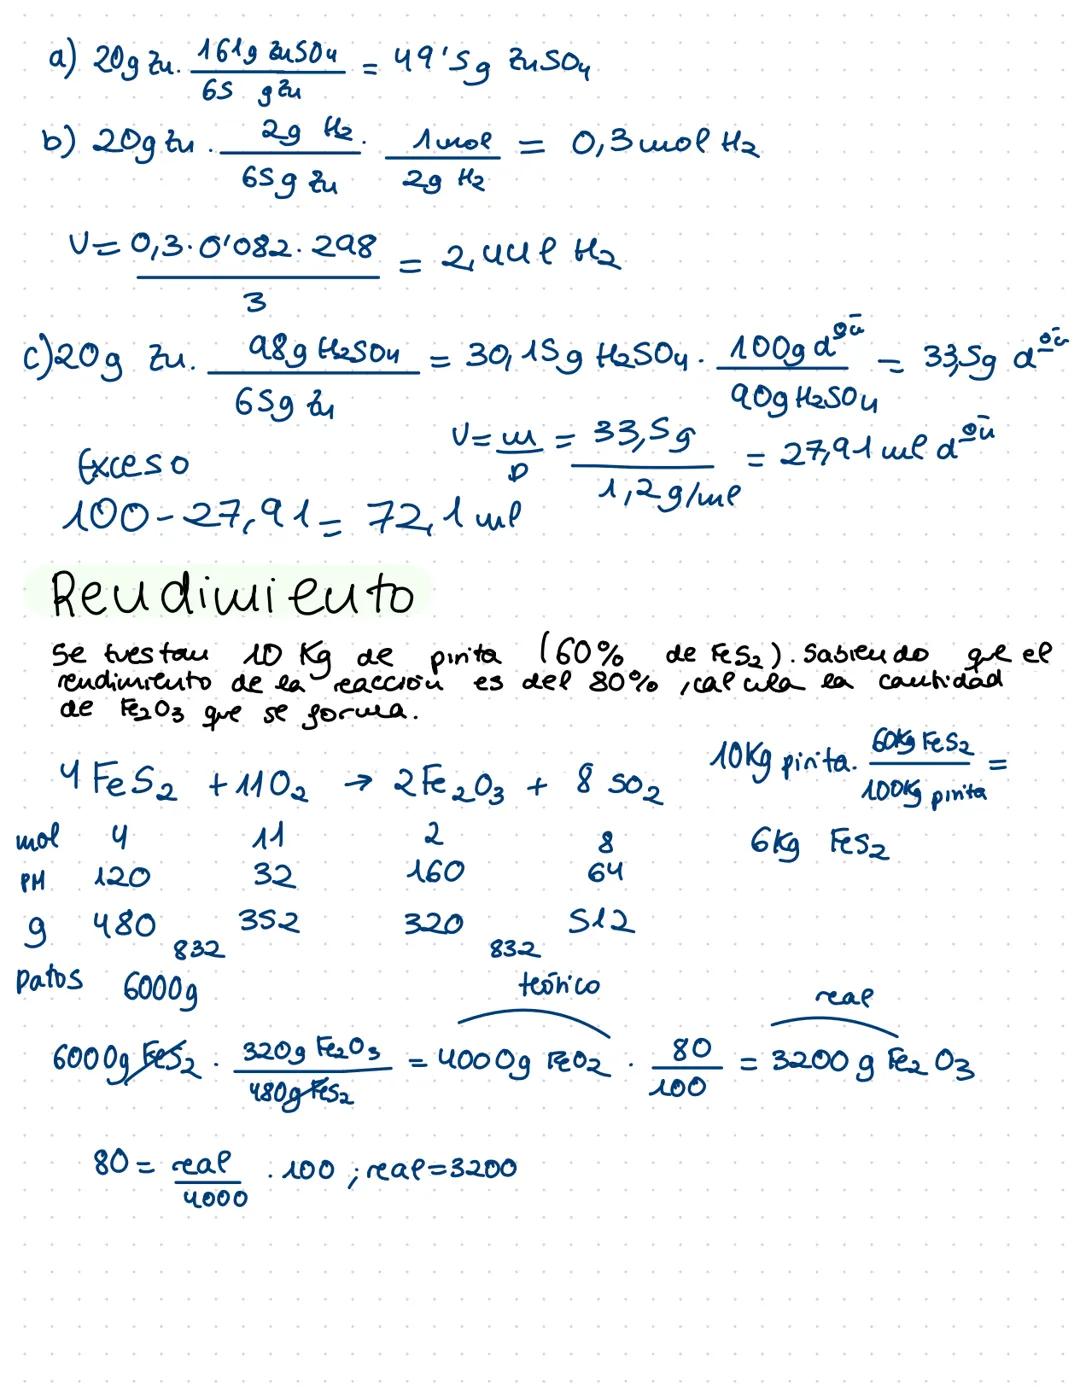 a) 20g Zn · 161g ZnSO4 / 65 g Zn = 49'5g ZnSO4
b) 20g Zn · 2g H2 / 65g Zn · 1mol / 2g H2 = 0,3mol H2
V = 0,3·0'082·298 / 3 = 2,44l H2
c) 20g Zn · 98g H2SO4 / 65g Zn = 30,15g H2SO4 · 100g dºn / 90g H2SO4 = 33,5g dºn
V = m / D = 33,5g / 1,2g/ml = 27,91 ml dºn
Exceso
100-27,91 = 72,1 ml
Rendimiento
Se tuestan 10 Kg de pirita (60% de FeS2). Sabiendo que el
rendimiento de la reacción es del 80%, calcula la cantidad
de Fe2O3 que se forma.
4 FeS2 + 11O2 → 2Fe2O3 + 8 SO2
10Kg pirita · 60Kg FeS2 / 100Kg pirita =
6Kg FeS2
mol 4 11 2 8
PM 120 32 160 64
g 480 352 320 512
832 832
Datos 6000g
teórico real
6000g FeS2 · 320g Fe2O3 / 480g FeS2 = 4000g FeO2 · 80 / 100 = 3200 g Fe2O3
80 = real / 4000 · 100 ; real=3200